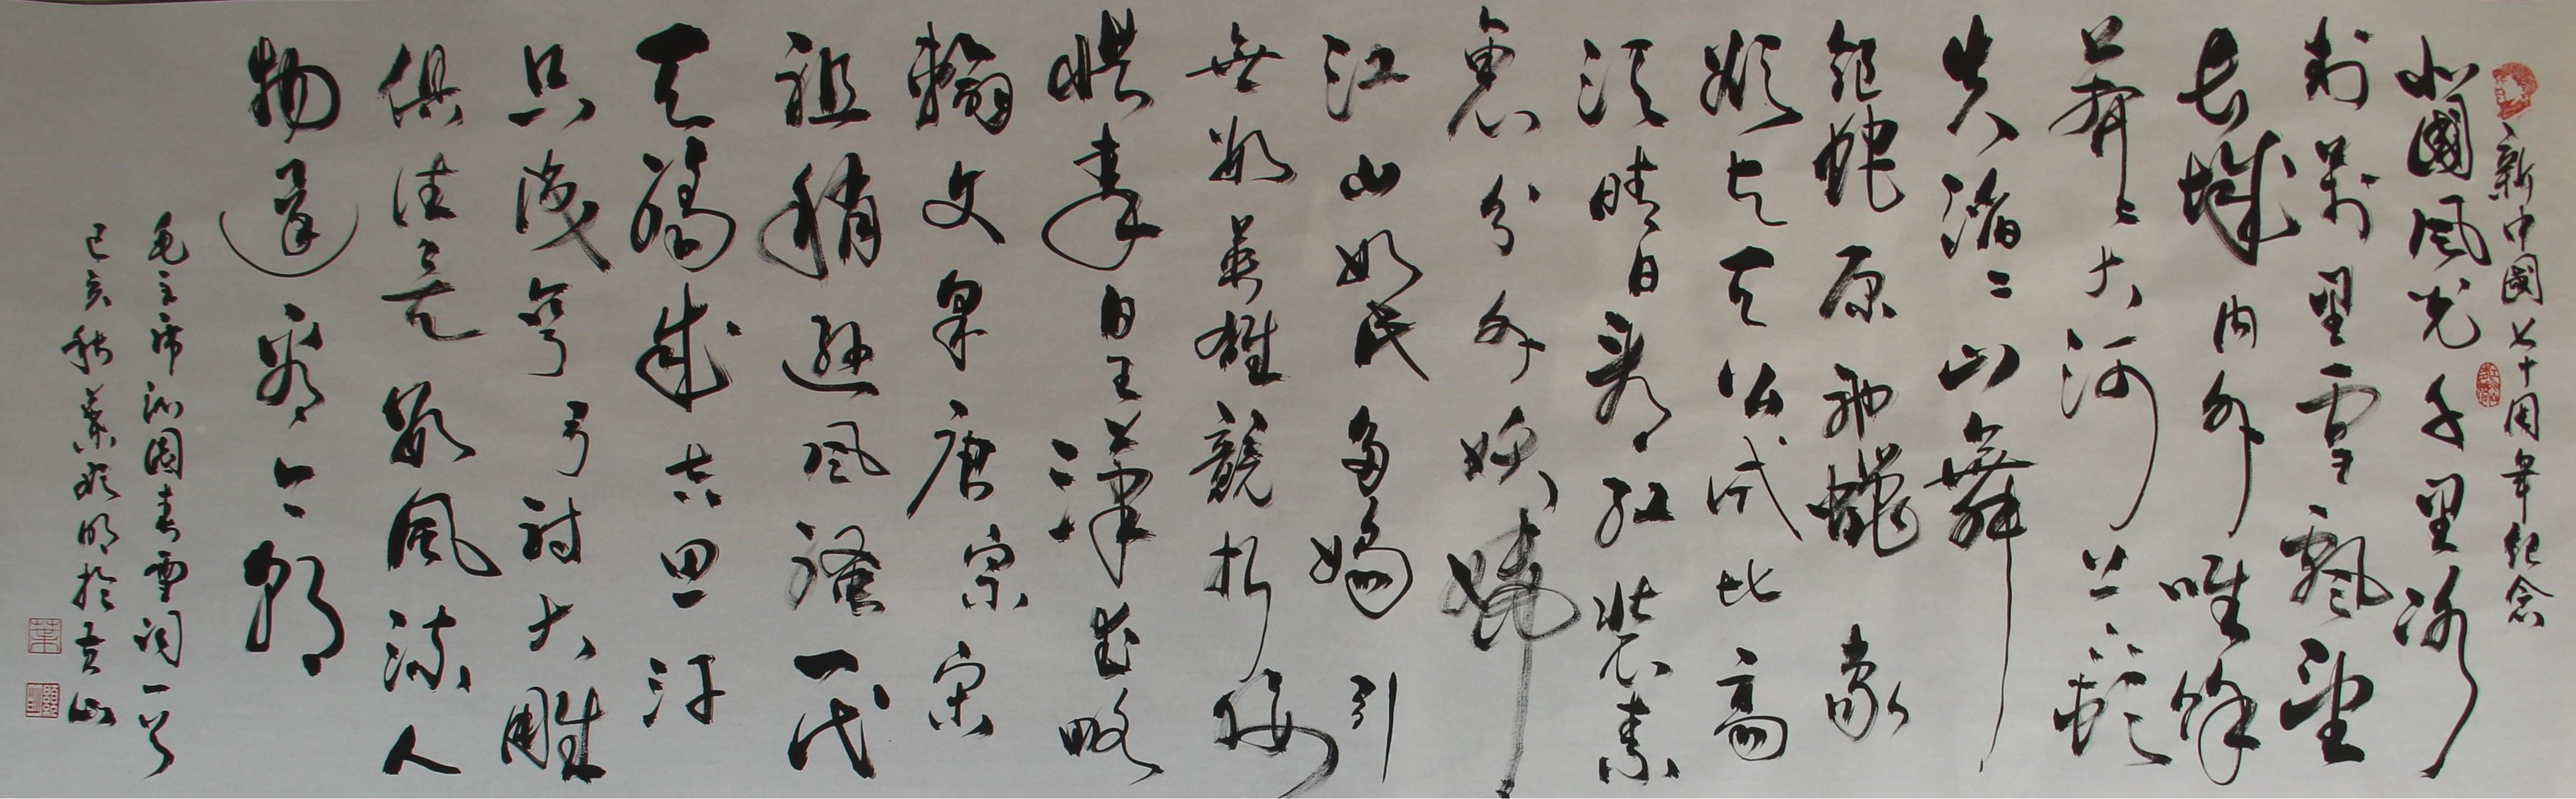 新中國七十周年纪念
北國風光千里冰
封萬里雪飄望
长城内外唯餘
莽〻大河上下頓
失滔〻山舞
銀蛇原驰蠟象
欲与天公试比高
须晴日看红装素
裹分外妖娆
江山如此多嬌引
無数英雄競折腰
惜秦皇漢武略
輸文采唐宗宋
祖稍遜風骚一代
天骄成吉思汗
只识弯弓射大雕
俱往矣数風流人
物還看今朝
毛主席沁园春雪词一首
己亥秋葉顯明於黄山
葉